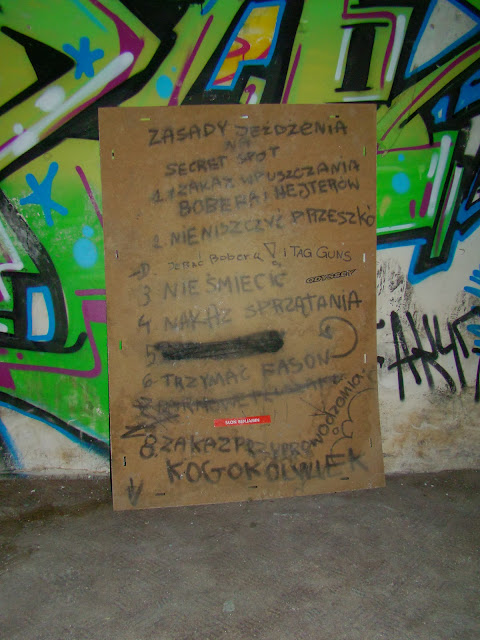 ZASADY JEŻDŻENIA
NA
SECRET SPOT
1. ZAKAZ WPUSZCZANIA
BOBERA I HEJTERÓW
2. NIENISZCZYĆ PRZESZKÓ
BOBERA ! i TAG GUNS
3 NIEŚMIECIĆ ODYSSEY
4 NAKAZ SPRZĄTANIA
5
6 TRZYMAĆ FASON
8. ZAKAZ PRZYPROWADZANIA
KOGOKOLWIEK